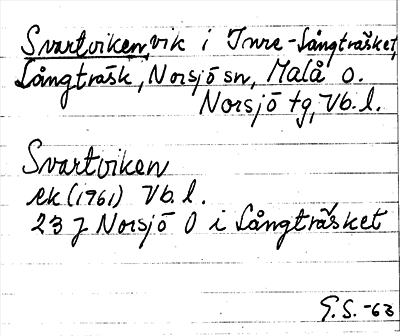 Svartviken, vik i Inre-Långträsket,
Långträsk, Norsjö sn, Malå o.
Norsjö tg, Vb. l.
Svartviken
ek (1961) Vb. l.
23 J Norsjö O i Långträsket
G. S. -63